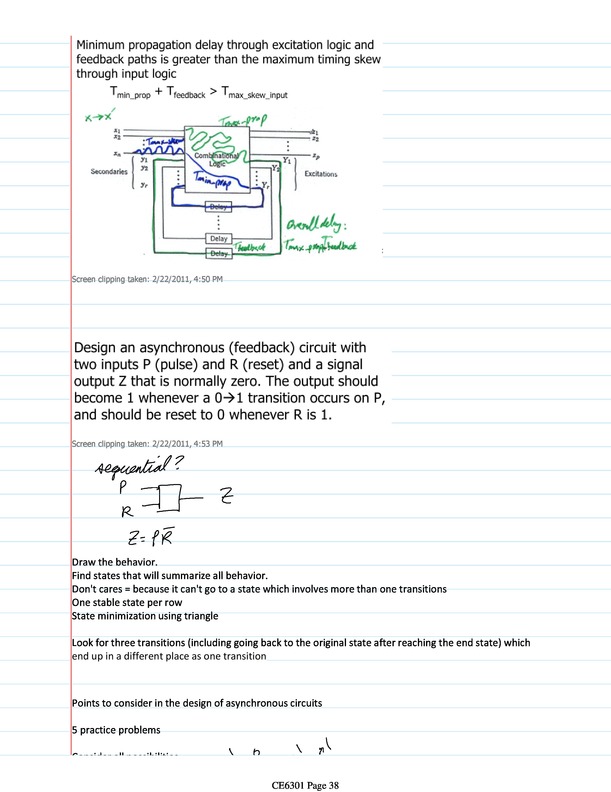 Minimum propagation delay through excitation logic and
feedback paths is greater than the maximum timing skew
through input logic
T min_prop + T feedback > T max_skew_input
x→x'
Tmax-prop
x1
x2
xn
Tmax-skew
z1
z2
zp
Combinational
Logic
Secondaries
y1
y2
yr
Tmin-prop
Y1
Y2
Yr
Excitations
Delay
Delay
Delay
Tfeedback
overall delay:
Tmax-prop+Tfeedback
Screen clipping taken: 2/22/2011, 4:50 PM
Design an asynchronous (feedback) circuit with
two inputs P (pulse) and R (reset) and a signal
output Z that is normally zero. The output should
become 1 whenever a 0→1 transition occurs on P,
and should be reset to 0 whenever R is 1.
Screen clipping taken: 2/22/2011, 4:53 PM
sequential?
P
R
Z
Z = P R̄
Draw the behavior.
Find states that will summarize all behavior.
Don't cares = because it can't go to a state which involves more than one transitions
One stable state per row
State minimization using triangle
Look for three transitions (including going back to the original state after reaching the end state) which
end up in a different place as one transition
Points to consider in the design of asynchronous circuits
5 practice problems
CE6301 Page 38